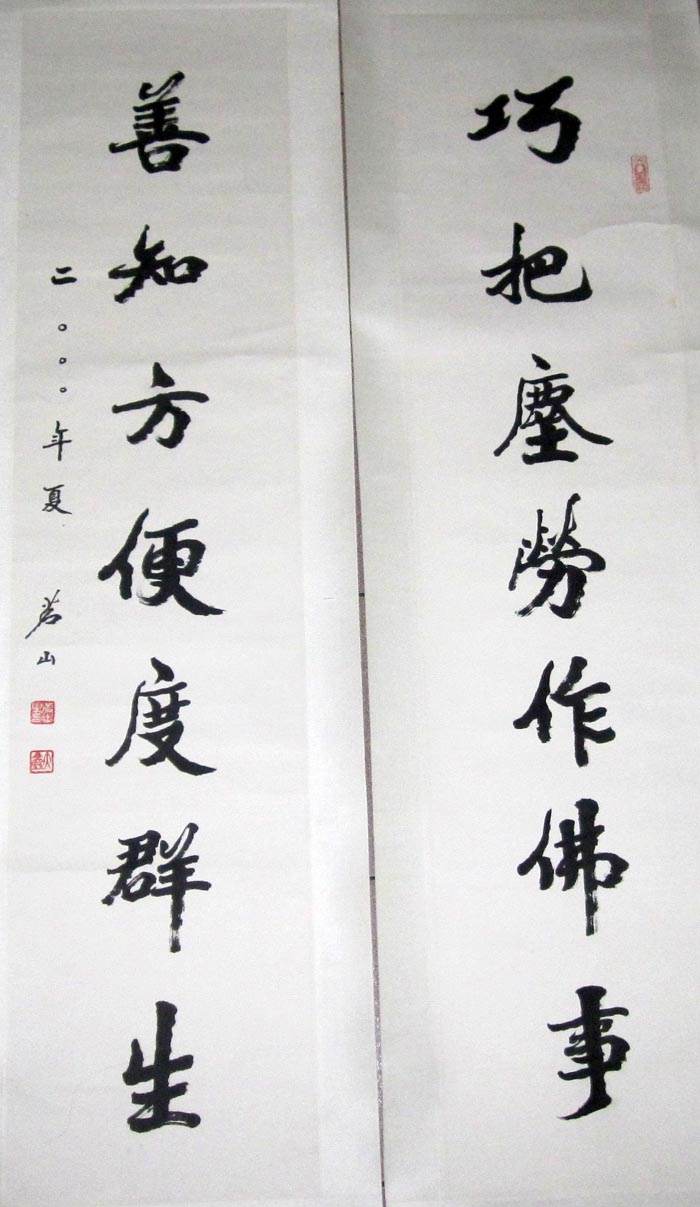 巧把塵勞作佛事
善知方便度群生
二〇〇〇年夏 茗山